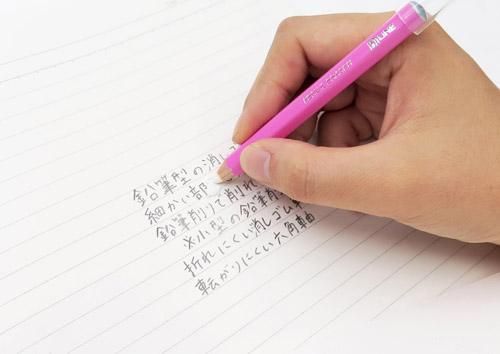 鉛筆型の消して
細かい部
鉛筆削りで削れ
※小型の鉛筆削
折れにくい消しゴム
転がりにくい六角軸